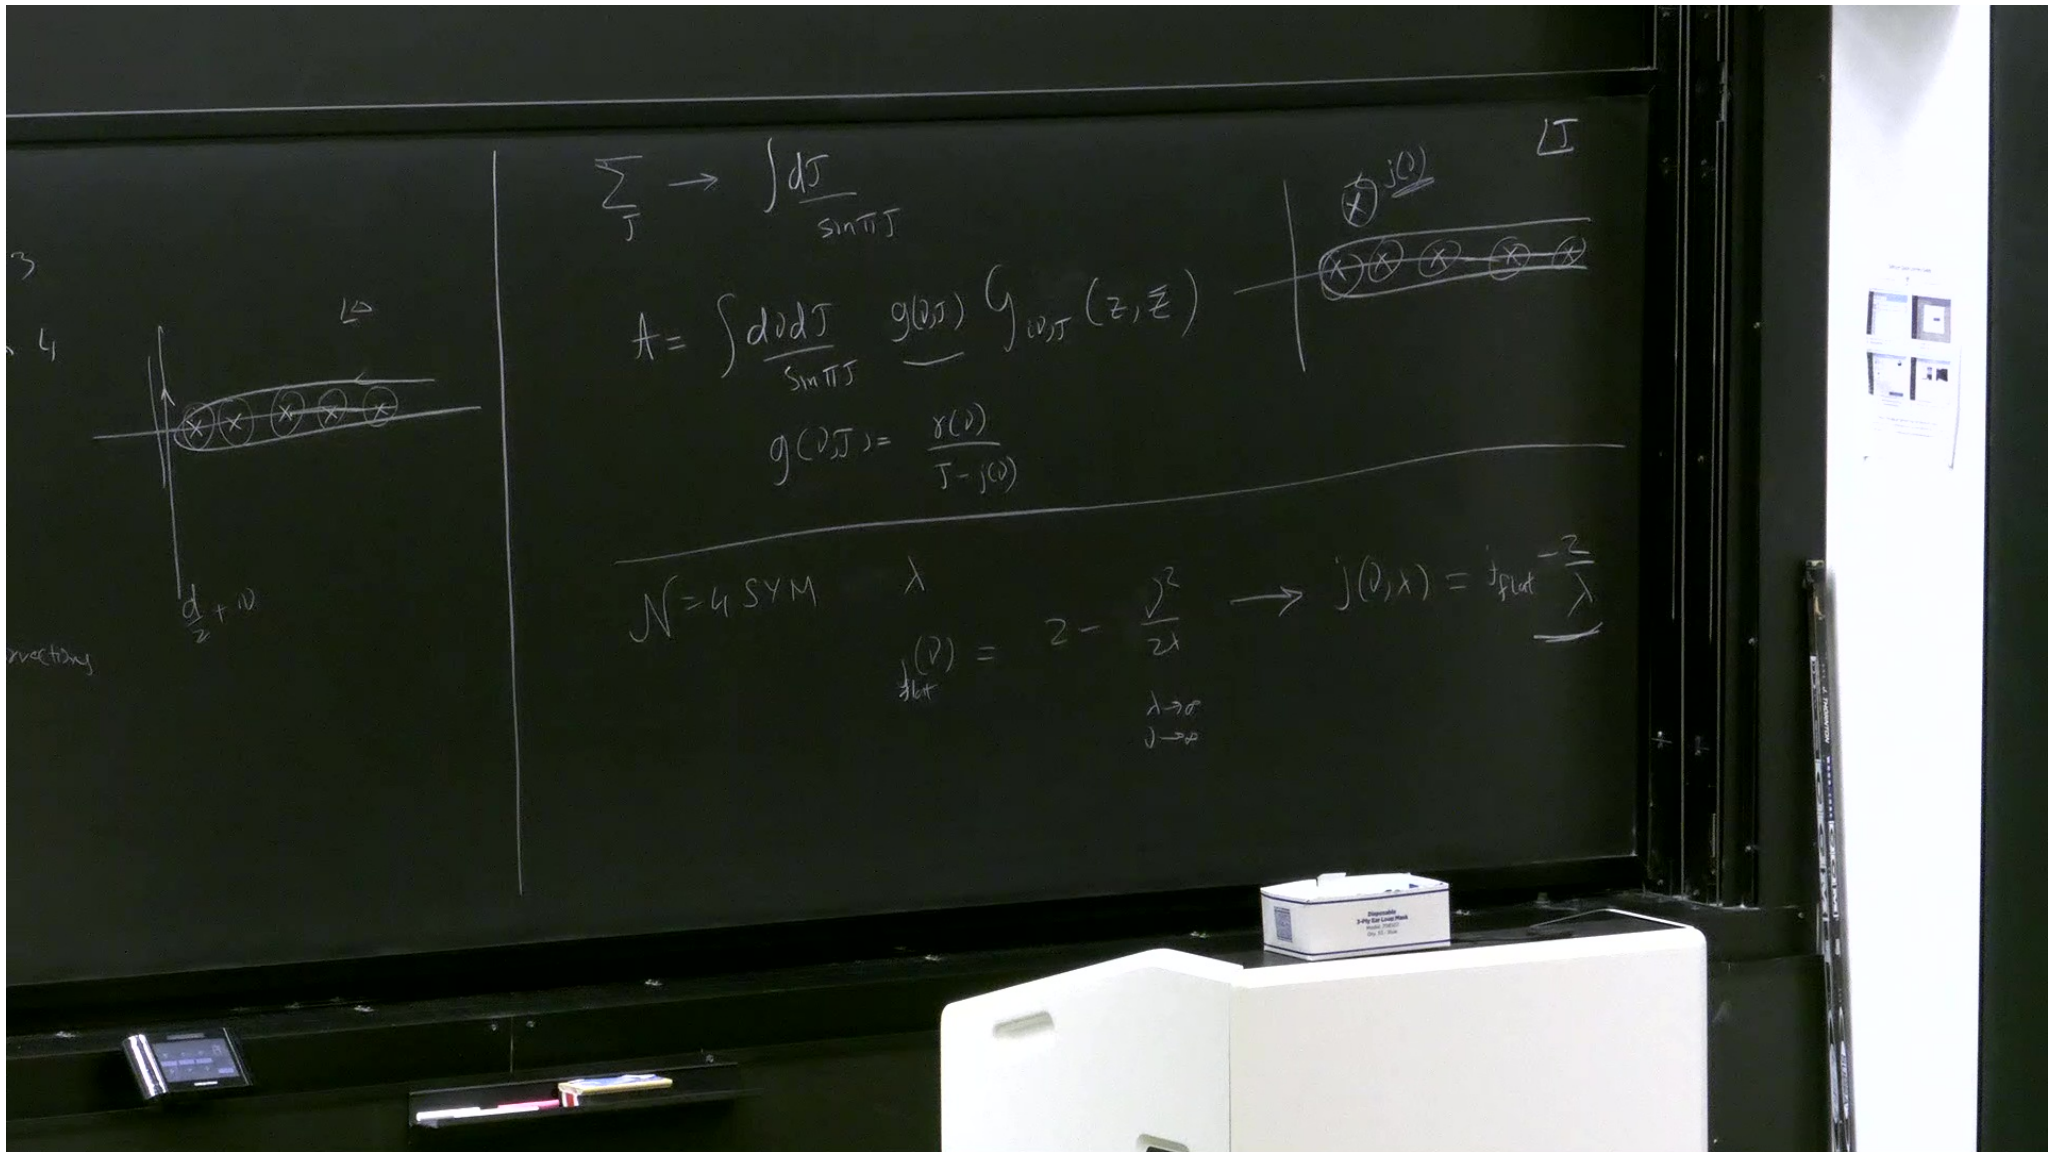 3
4
Δ
d/2 + iν
Σ_J → ∫ dJ / sin πJ
A = ∫ dν dJ / sin πJ g(ν,J) G_{iν,J} (z, z̄)
g(ν,J) = r(ν) / J - j(ν)
J
j(ν)
N = 4 SYM λ
j_flat (ν) = 2 - ν² / 2λ → j(ν,λ) = j_flat - 2/λ
λ → ∞
ν → ∞
Disposable
3-Ply Ear Loop Mask